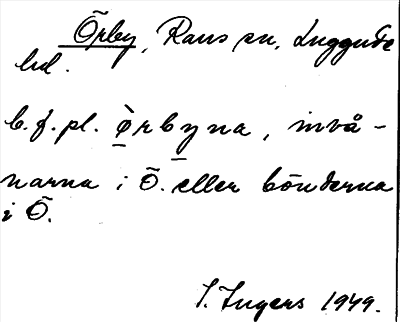 Örby, Raus sn, Luggude
hd.
b.f.pl. ö̀rbyna, invå-
narna i Ö. eller bönderna
i Ö.
I. Ingers 1949.